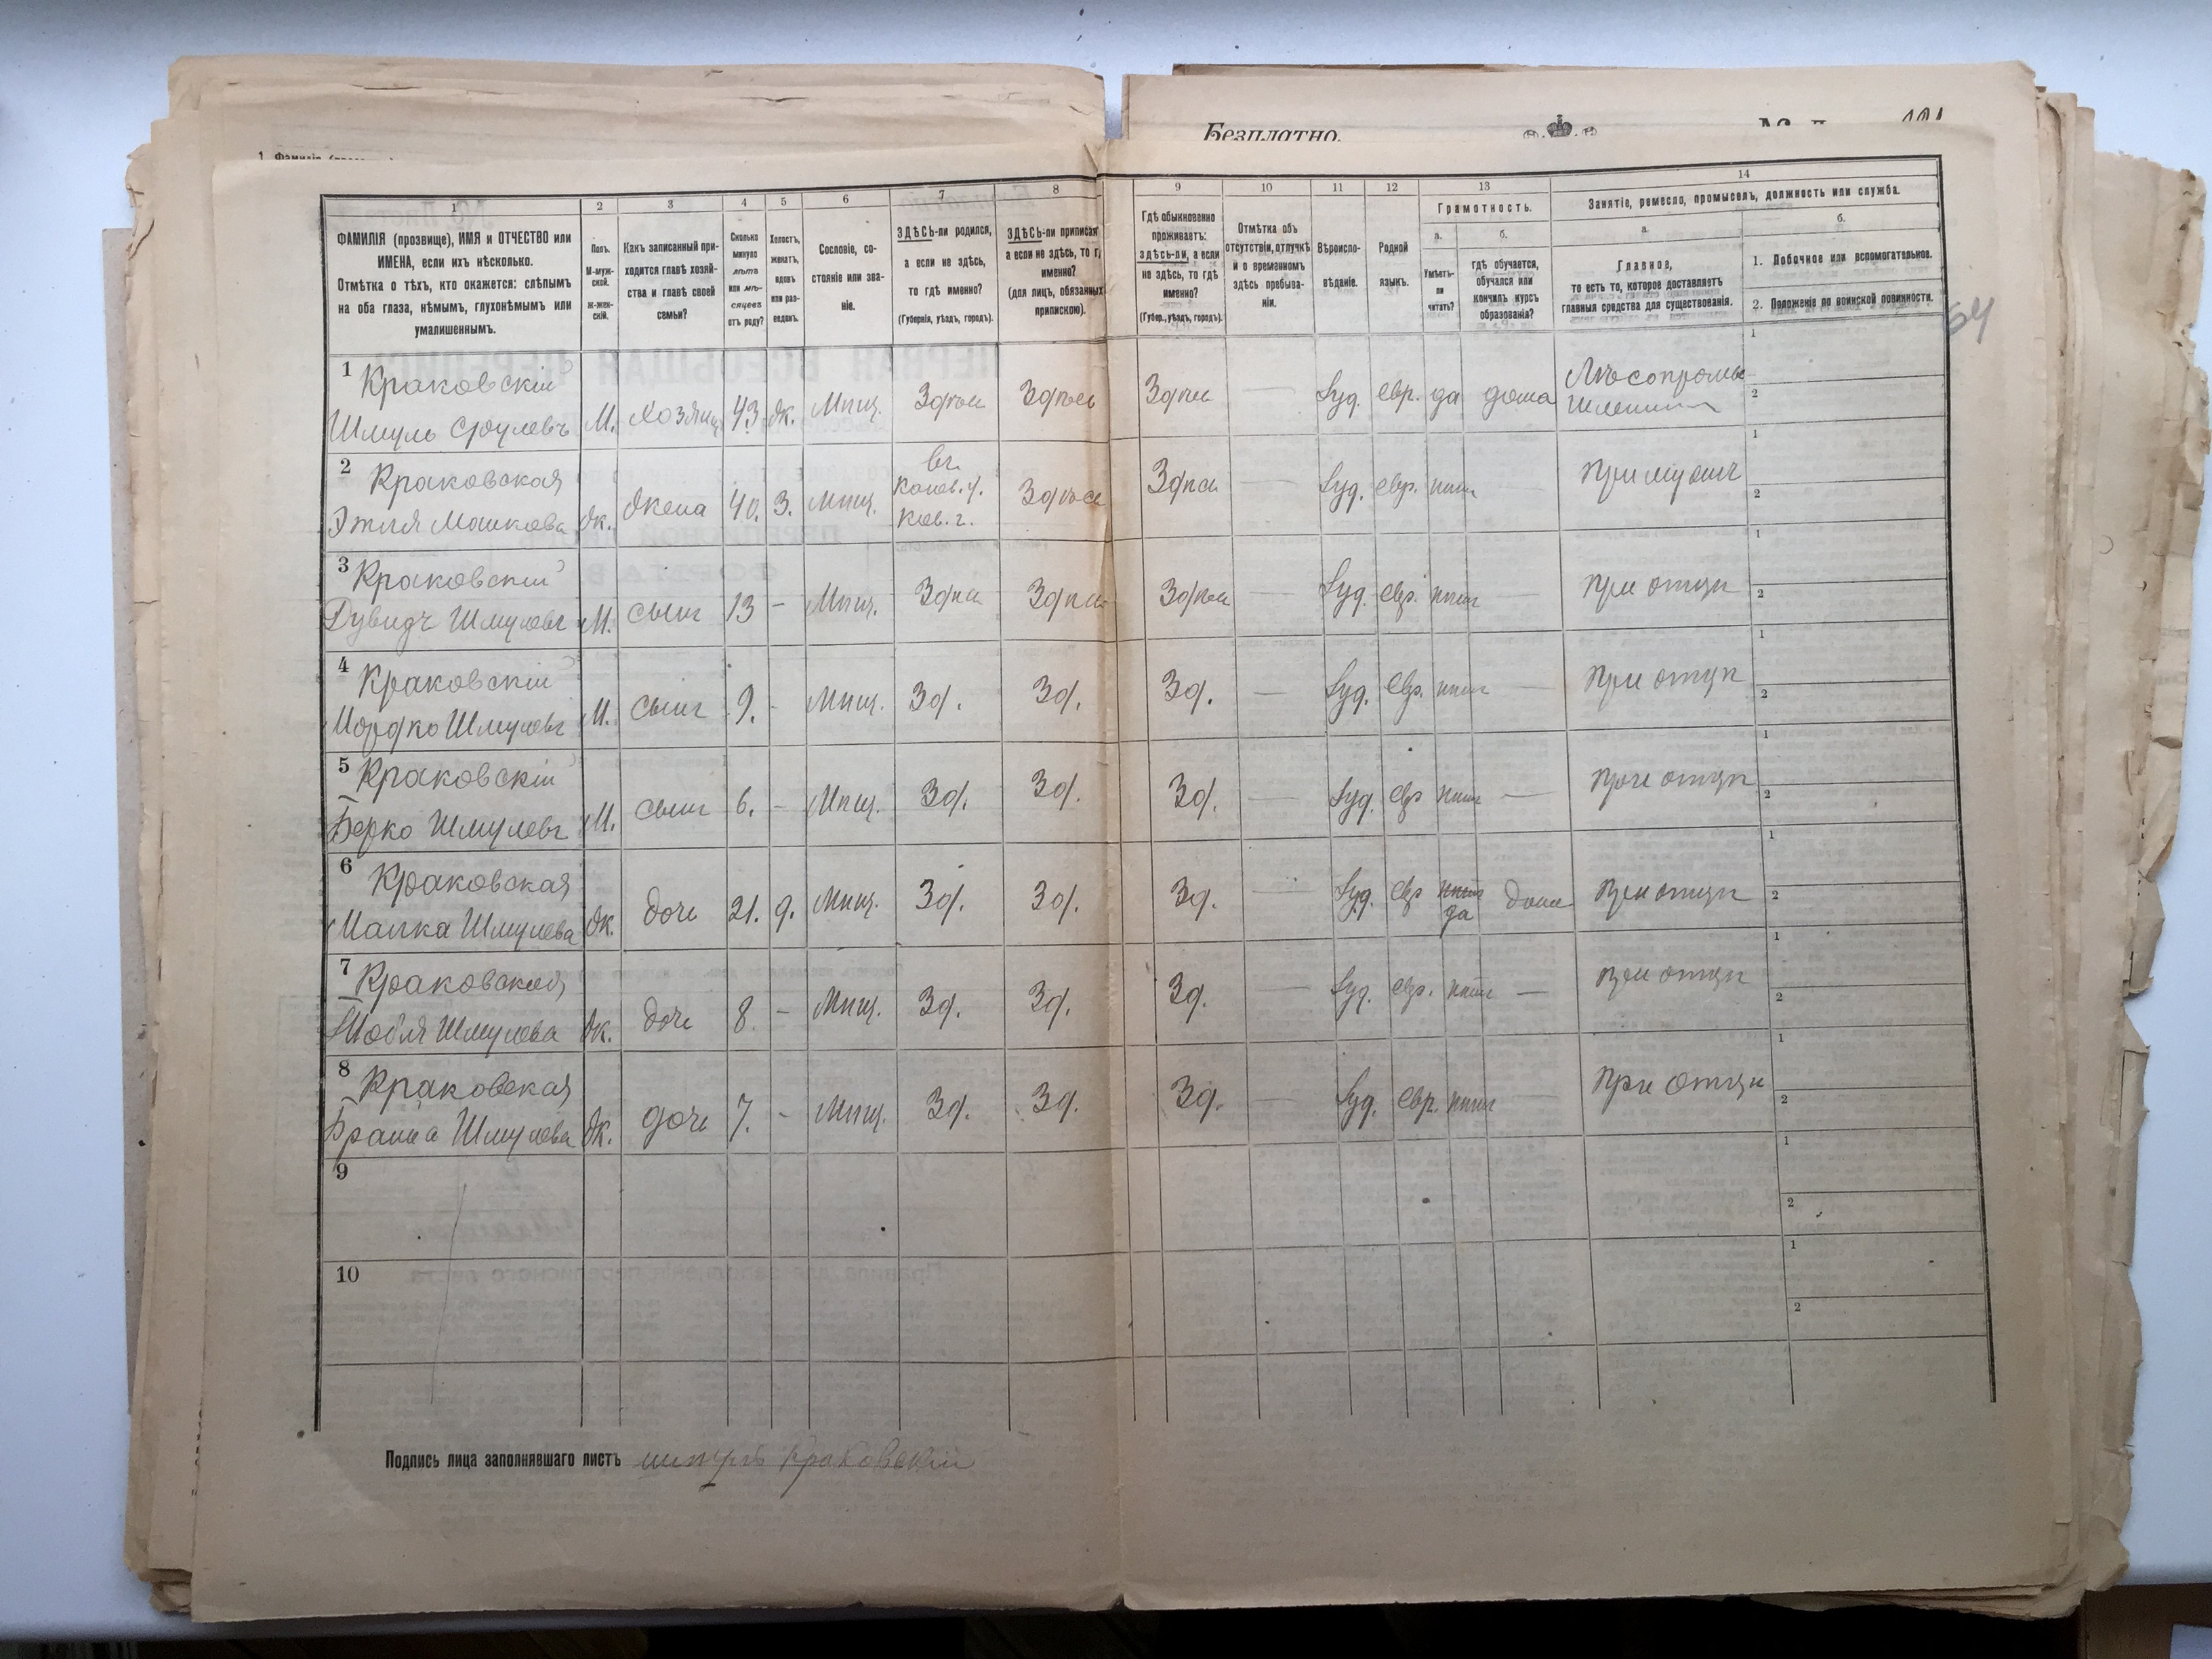 Безплатно.
1
ФАМИЛІЯ (прозвище), ИМЯ и ОТЧЕСТВО или
ИМЕНА, если ихъ нѣсколько.
Отмѣтка о тѣхъ, кто окажется: слѣпымъ
на оба глаза, нѣмымъ, глухонѣмымъ или
умалишеннымъ.
2
Полъ.
М-муж-
ской.
ж-жен-
скій.
3
Какъ записанный при-
ходится главѣ хозяй-
ства и главѣ своей
семьи?
4
Сколько
минуло
лѣтъ
или мѣ-
сяцевъ
отъ роду?
5
Холостъ,
женатъ,
вдовъ
или раз-
веденъ.
6
Сословіе, со-
стояніе или зва-
ніе.
7
ЗДѢСЬ-ли родился,
а если не здѣсь,
то гдѣ именно?
(Губернія, уѣздъ, городъ).
8
ЗДѢСЬ-ли приписанъ
а если не здѣсь, то г
именно?
(для лицъ, обязанныхъ
припискою).
9
Гдѣ обыкновенно
проживаетъ:
здѣсь-ли, а если
не здѣсь, то гдѣ
именно?
(Губер., уѣздъ, городъ).
10
Отмѣтка объ
отсутствіи, отлучкѣ
и о временномъ
здѣсь пребыва-
ніи.
11
Вѣроиспо-
вѣданіе.
12
Родной
языкъ.
13
Грамотность.
а.
Умѣетъ-
ли
читать?
б.
гдѣ обучается,
обучался или
кончилъ курсъ
образованія?
14
Занятіе, ремесло, промыселъ, должность или служба.
а.
Главное,
то есть то, которое доставляетъ
главныя средства для существованія.
б.
1. Побочное или вспомогательное.
2. Положеніе по воинской повинности.
54
1 Краковскій
Шмуль Срулевъ М. Хозяин 43 Ж. Мѣщ. Здѣсь Здѣсь Здѣсь — Іуд. евр. да дома
1
2
2 Краковская
Этля Машкова Ж. Жена 40. З. Мѣщ.
Канев. у.
Кіев. г.
Здѣсь Здѣсь — Іуд. евр. нѣтъ — При мужѣ
1
2
3 Краковскій
Дувидъ Шмулевъ М. сынъ 13 - Мѣщ. Здѣсь Здѣсь Здѣсь — Іуд. евр. нѣтъ При отцѣ
1
2
4 Краковскій
Мордко Шмулевъ М. сынъ 9. - Мѣщ. Зд. Зд. Зд. — Іуд. Евр. нѣтъ — При отцѣ
1
2
5 Краковскій
Берко Шмулевъ М. сынъ 6. - Мѣщ. Зд. Зд. Зд. — Іуд. евр нѣтъ — При отцѣ
1
2
6 Краковская
Малка Шмулева Ж. дочь 21. д. Мѣщ. Зд. Зд. Зд. — Іуд. евр нѣтъ да дома При отцѣ
1
2
7 Краковская
Шмулева Ж. дочь 8. - Мѣщ. Зд. Зд. Зд. — Іуд. евр. нѣтъ — При отцѣ
1
2
8 Краковская
Шмулева Ж. дочь 7. - Мѣщ. Зд. Зд. Зд. — Іуд. евр. нѣтъ При отцѣ
1
2
9
1
2
10
1
2
Подпись лица заполнявшаго листъ Краковскій